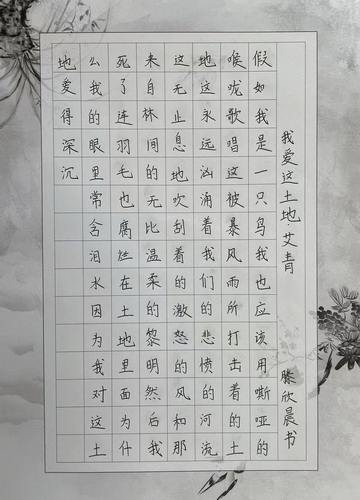 我爱这土地·艾青 滕欣晨书
假如我是一只鸟我也应该用嘶哑的
喉咙歌唱这被暴风雨所打击着的土
地这永远汹涌着我们的悲愤的河流
这无止息地吹刮着的激怒的风和那
来自林间的无比温柔的黎明然后我
死了连羽毛也腐烂在土地里面为什
么我的眼里常含泪水因为我对这土
地爱得深沉